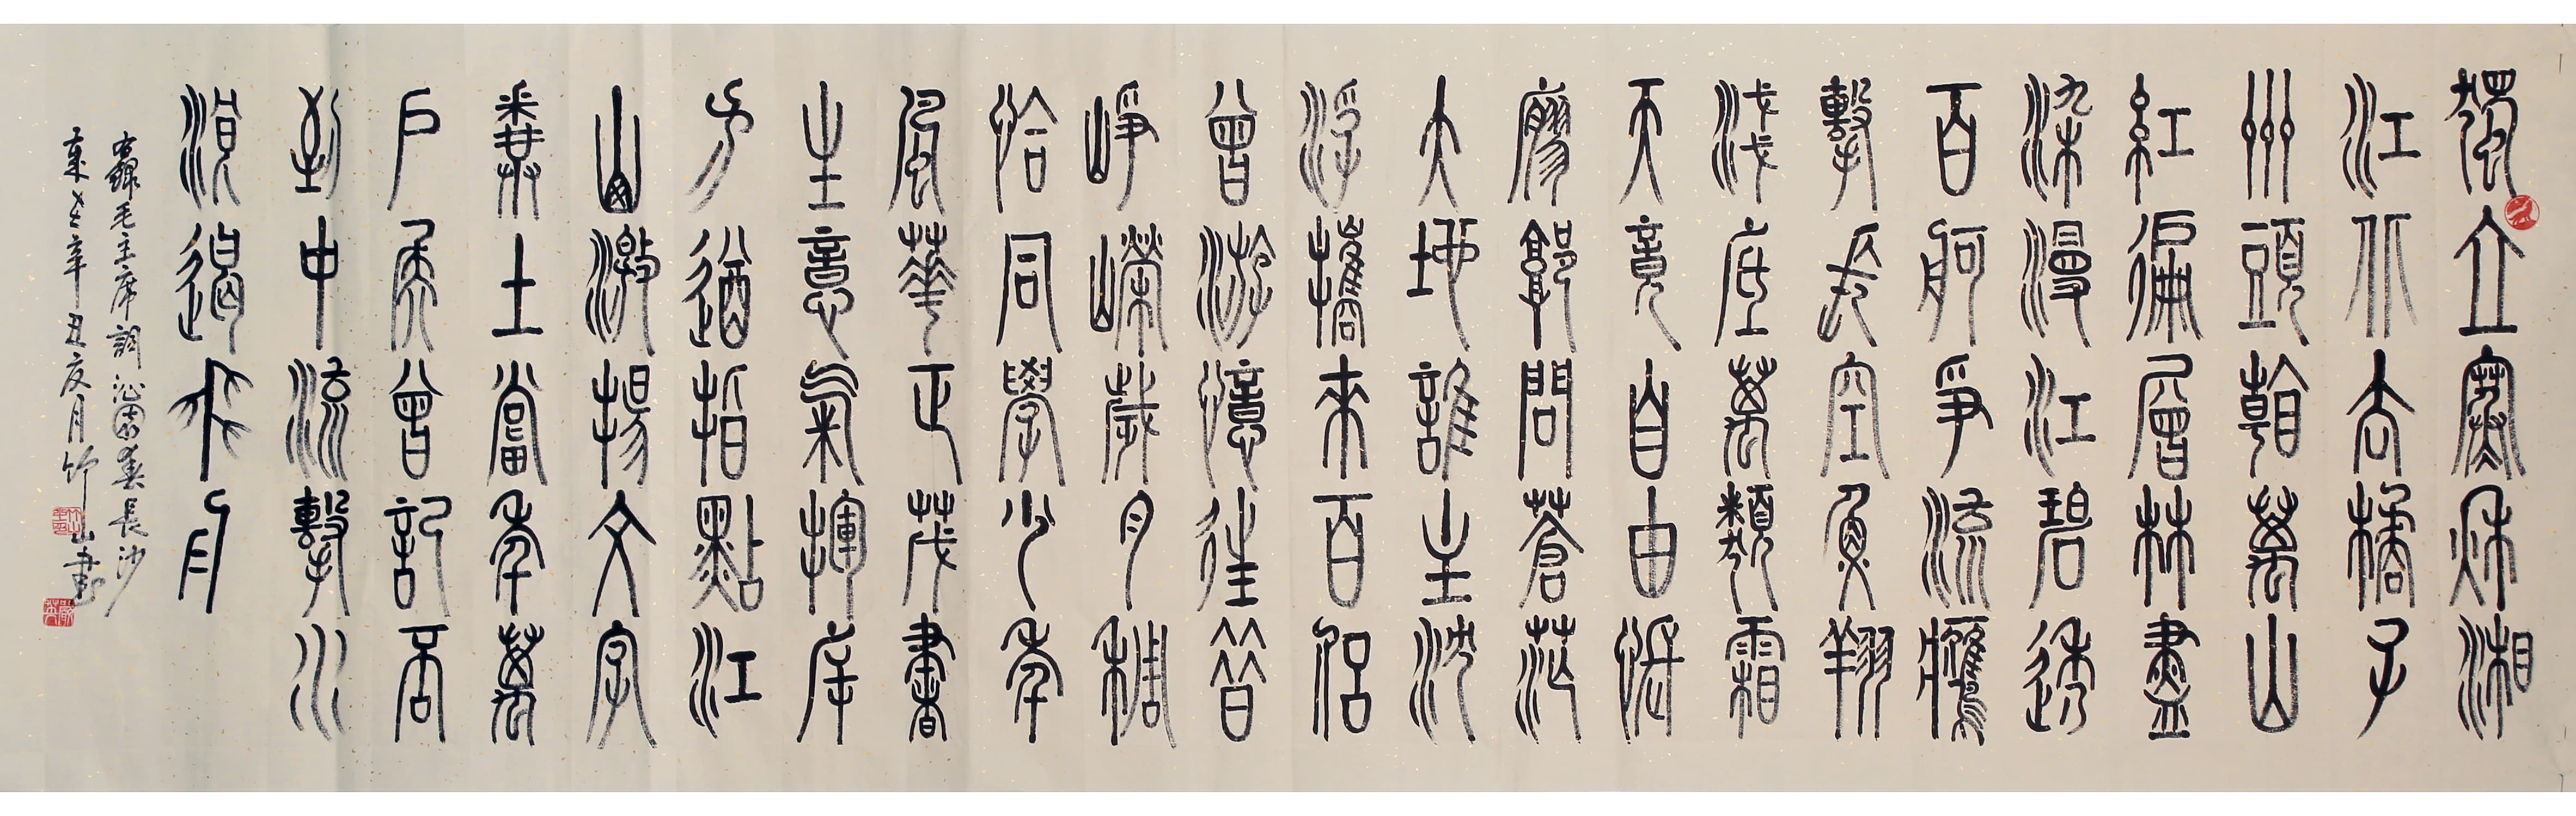 獨立寒秋湘
江北去橘子
州頭看萬山
紅遍層林盡
染漫江碧透
百舸爭流鷹
擊長空魚翔
淺底萬類霜
天競自由悵
廖廓問蒼茫
大地誰主沉
浮攜來百侶
曾游憶往昔
崢嶸歲月稠
恰同學少年
風華正茂書
生意氣揮斥
方遒指點江
山激揚文字
糞土當年萬
戶侯曾記否
到中流擊水
浪遏飛舟
錄毛主席詞沁園春長沙
辛丑夏月竹山書